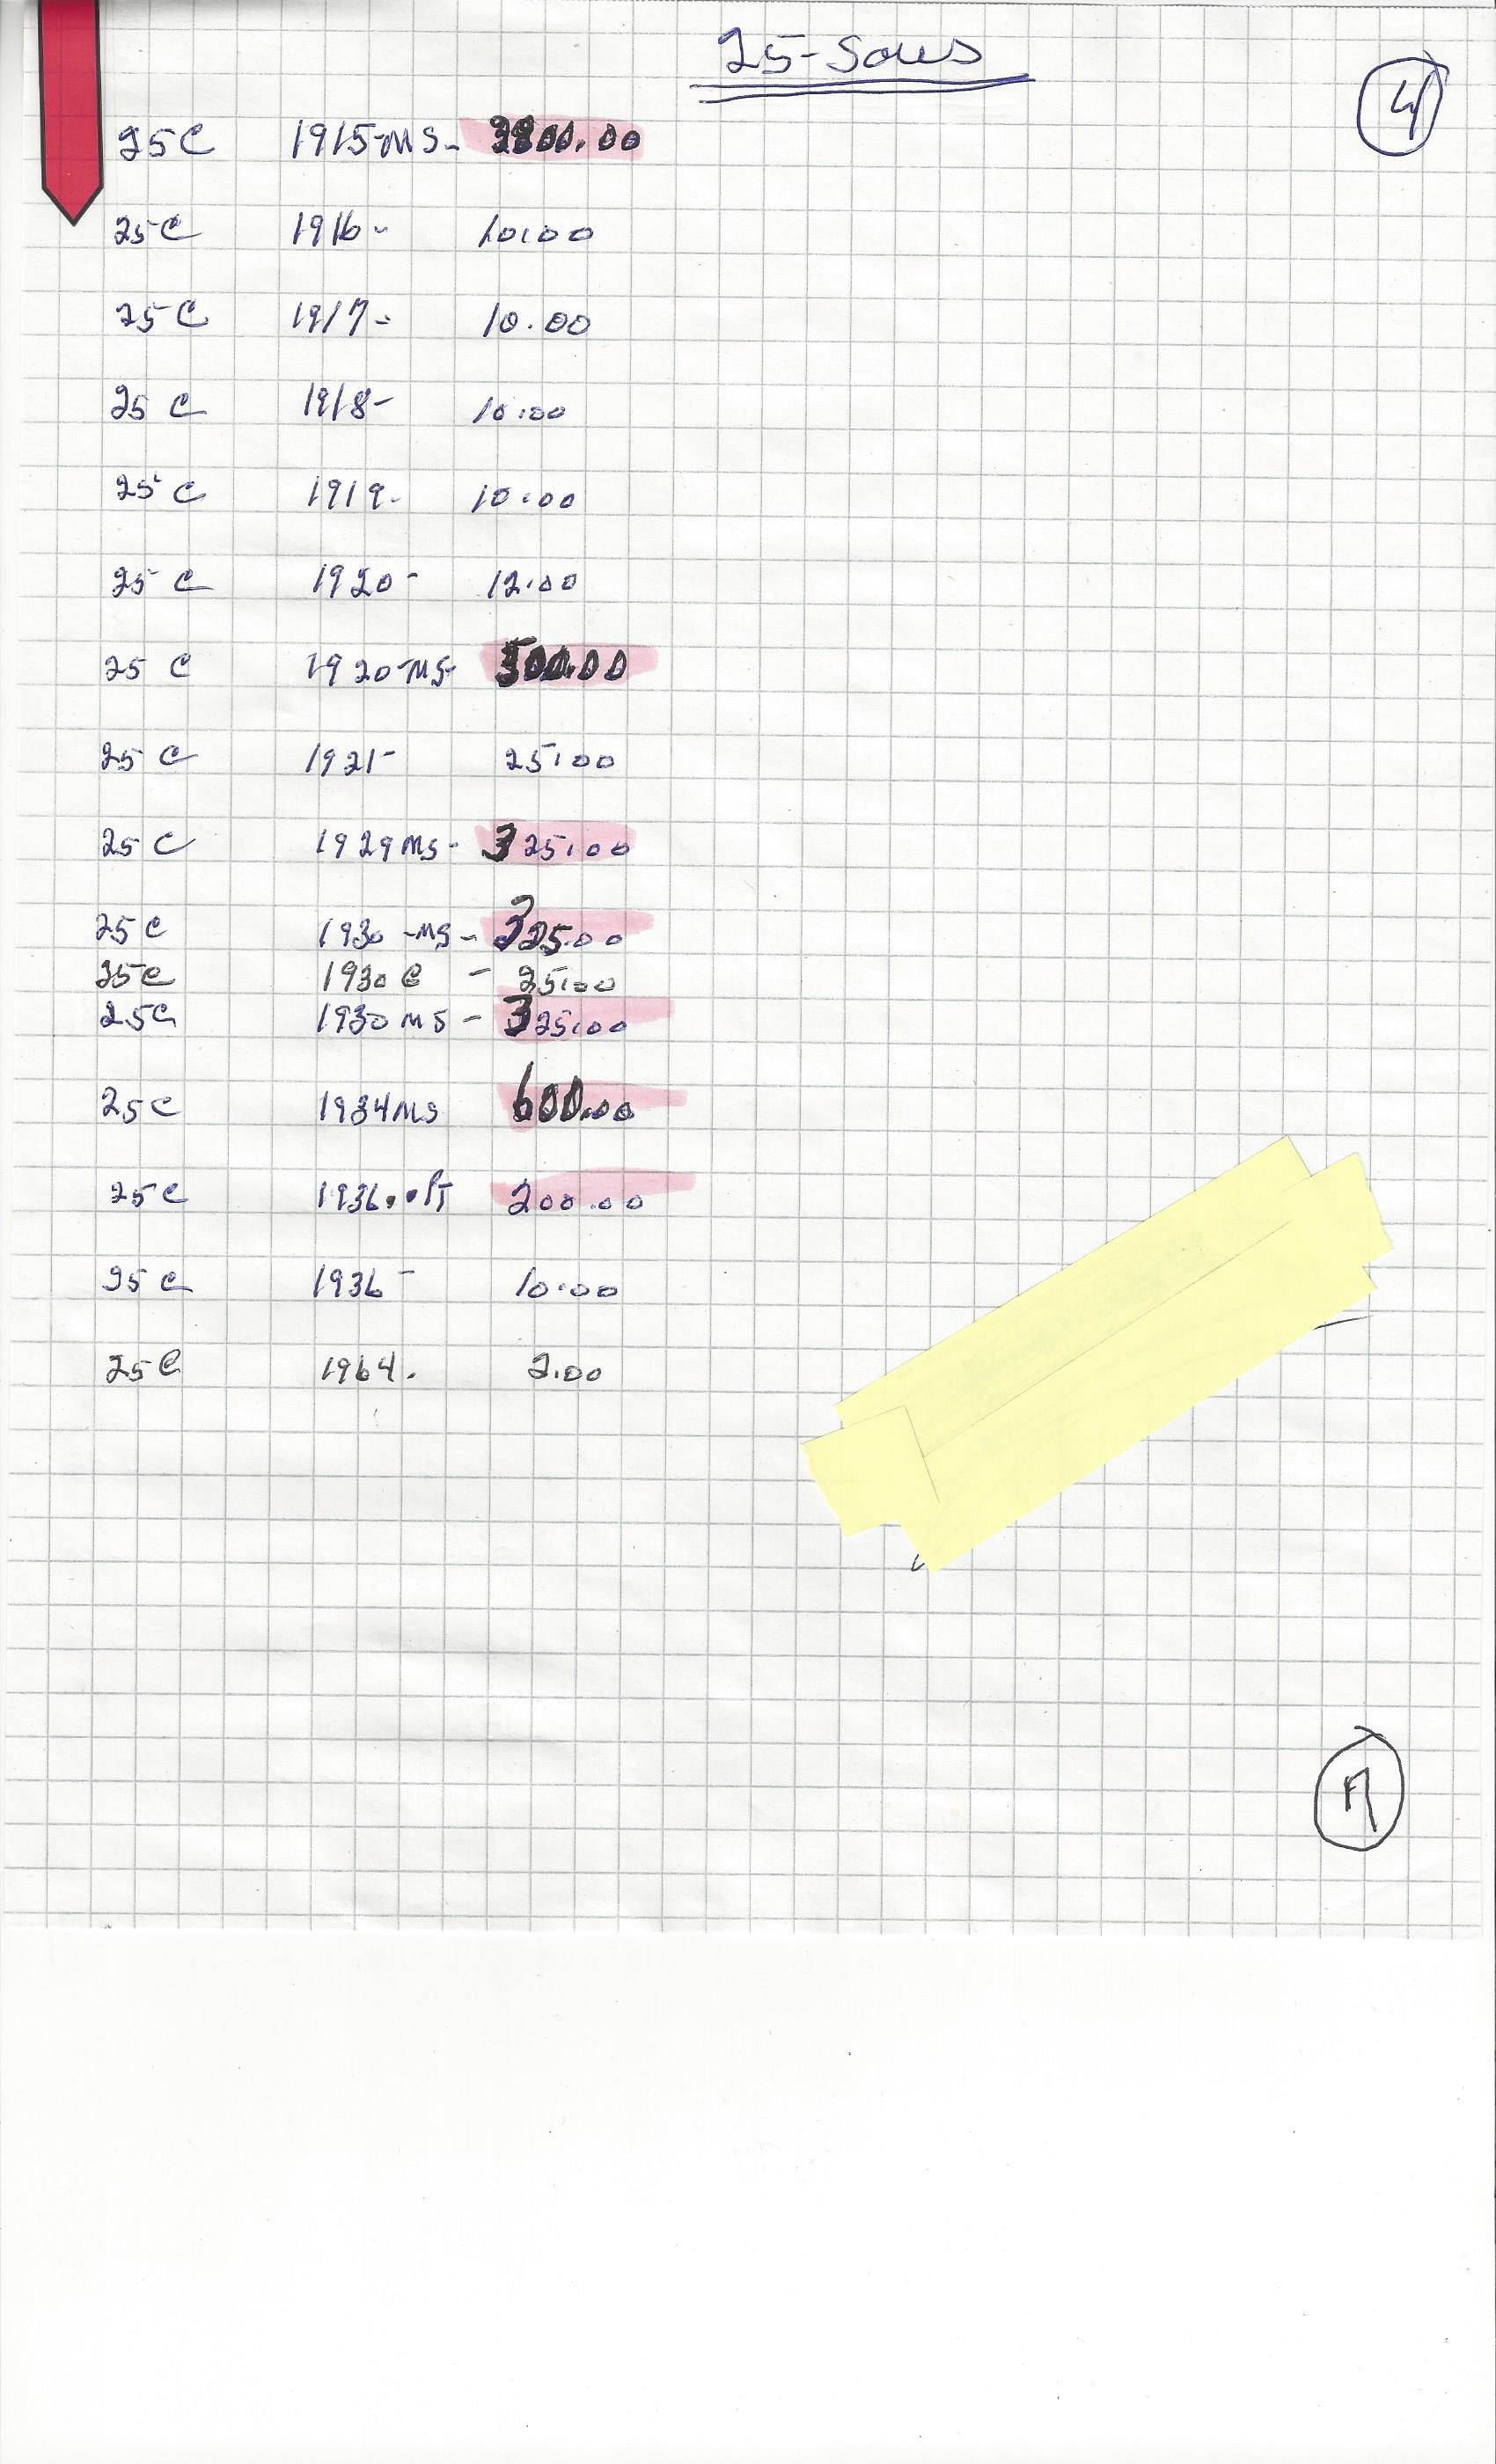 25-Sous
4
25C 1915-MS- 3800.00
25C 1916- 10.00
25C 1917- 10.00
25C 1918- 10.00
25C 1919- 10.00
25C 1920- 12.00
25C 1920-MS- 500.00
25C 1921- 25.00
25C 1929MS- 325.00
25C 1930-MS- 325.00
25C 1930C - 25.00
25C 1930MS - 325.00
25C 1934MS 600.00
25C 1936. .PT 200.00
25C 1936- 10.00
25C 1964. 2.00